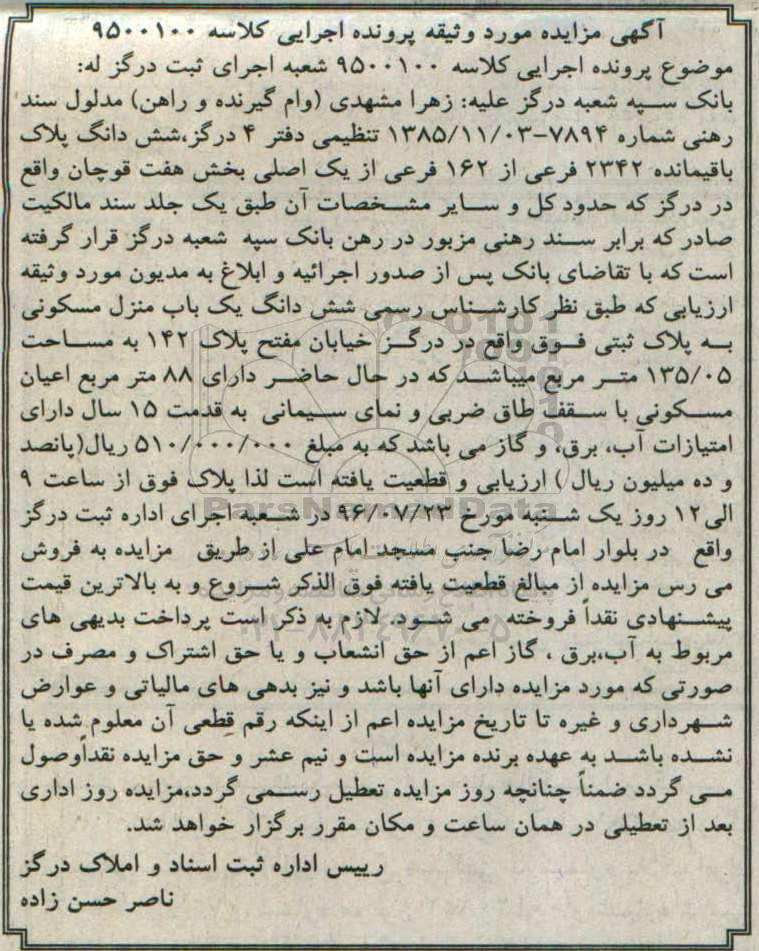 آگهی مزایده مورد وثیقه پرونده اجرایی کلاسه ۹۵۰۰۱۰۰
موضوع پرونده اجرایی کلاسه ۹۵۰۰۱۰۰ شعبه اجرای ثبت درگز له:
بانک سپه شعبه درگز علیه: زهرا مشهدی (وام گیرنده و راهن) مدلول سند
رهنی شماره ۷۸۹۴-۱۳۸۵/۱۱/۰۳ تنظیمی دفتر ۴ درگز،شش دانگ پلاک
باقیمانده ۲۳۴۲ فرعی از ۱۶۲ فرعی از یک اصلی بخش هفت قوچان واقع
در درگز که حدود کل و سایر مشخصات آن طبق یک جلد سند مالکیت
صادر که برابر سند رهنی مزبور در رهن بانک سپه شعبه درگز قرار گرفته
است که با تقاضای بانک پس از صدور اجرائیه و ابلاغ به مدیون مورد وثیقه
ارزیابی که طبق نظر کارشناس رسمی شش دانگ یک باب منزل مسکونی
به پلاک ثبتی فوق واقع در درگز خیابان مفتح پلاک ۱۴۲ به مساحت
۱۳۵/۰۵ متر مربع میباشد که در حال حاضر دارای ۸۸ متر مربع اعیان
مسکونی با سقف طاق ضربی و نمای سیمانی به قدمت ۱۵ سال دارای
امتیازات آب، برق، و گاز می باشد که به مبلغ ۵۱۰/۰۰۰/۰۰۰ ریال(پانصد
و ده میلیون ریال ) ارزیابی و قطعیت یافته است لذا پلاک فوق از ساعت ۹
الی۱۲ روز یک شنبه مورخ ۹۶/۰۷/۲۳ در شعبه اجرای اداره ثبت درگز
واقع در بلوار امام رضا جنب مسجد امام علی از طریق مزایده به فروش
می رس مزایده از مبالغ قطعیت یافته فوق الذکر شروع و به بالاترین قیمت
پیشنهادی نقداً فروخته می شود. لازم به ذکر است پرداخت بدیهی های
مربوط به آب،برق ، گاز اعم از حق انشعاب و یا حق اشتراک و مصرف در
صورتی که مورد مزایده دارای آنها باشد و نیز بدهی های مالیاتی و عوارض
شهرداری و غیره تا تاریخ مزایده اعم از اینکه رقم قطعی آن معلوم شده یا
نشده باشد به عهده برنده مزایده است و نیم عشر و حق مزایده نقداًوصول
می گردد ضمناً چنانچه روز مزایده تعطیل رسمی گردد،مزایده روز اداری
بعد از تعطیلی در همان ساعت و مکان مقرر برگزار خواهد شد.
رییس اداره ثبت اسناد و املاک درگز
ناصر حسن زاده
ParsNamadData